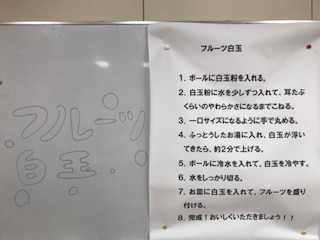 フルーツ
白玉
フルーツ白玉
1. ボールに白玉粉を入れる。
2. 白玉粉に水を少しずつ入れて、耳たぶ
くらいのやわらかさになるまでこねる。
3. 一口サイズになるように手で丸める。
4. ふっとうしたお湯に入れ、白玉が浮い
てきたら、約2分で上げる。
5. ボールに冷水を入れて、白玉を冷やす。
6. 水をしっかり切る。
7. お皿に白玉を入れて、フルーツを盛り
付ける。
8. 完成！おいしくいただきましょう！！